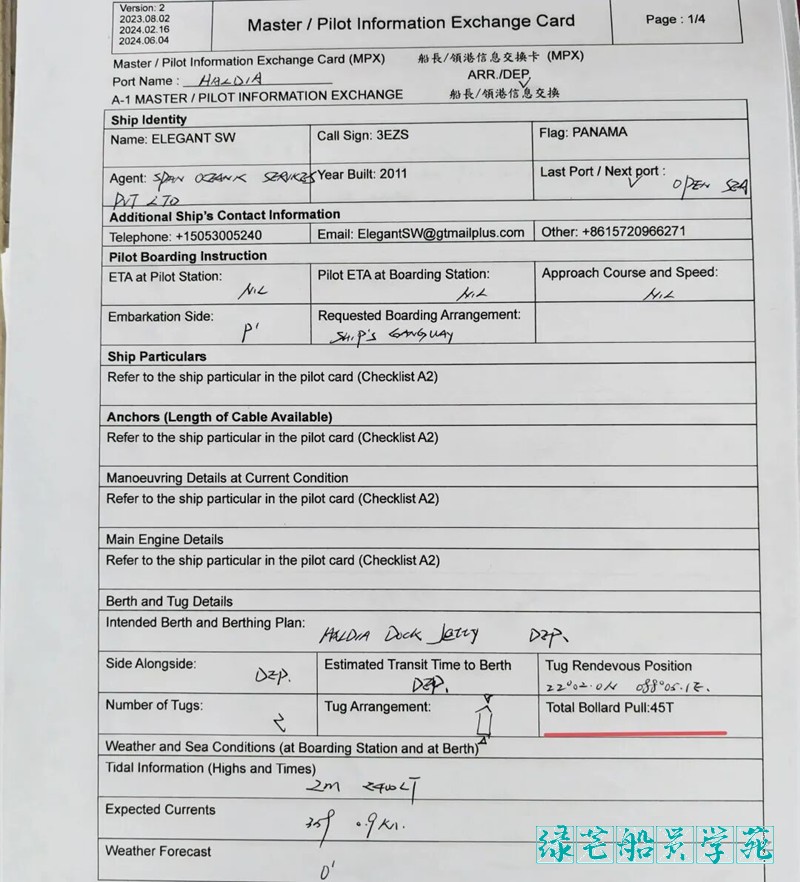 Version: 2
2023.08.02
2024.02.16
2024.06.04
Master / Pilot Information Exchange Card
Page : 1/4
Master / Pilot Information Exchange Card (MPX) 船長/領港信息交換卡 (MPX)
Port Name : HALDIA ARR./DEP.
A-1 MASTER / PILOT INFORMATION EXCHANGE 船長/領港信息交換
Ship Identity
Name: ELEGANT SW Call Sign: 3EZS Flag: PANAMA
Agent: SPAN OCEANIC SERVICES Year Built: 2011 Last Port / Next port : OPEN SEA
PVT LTD
Additional Ship's Contact Information
Telephone: +15053005240 Email: ElegantSW@gtmailplus.com Other: +8615720966271
Pilot Boarding Instruction
ETA at Pilot Station: Pilot ETA at Boarding Station: Approach Course and Speed:
NiL NiL NiL
Embarkation Side: Requested Boarding Arrangement:
P' SHiP'S GANGWAY
Ship Particulars
Refer to the ship particular in the pilot card (Checklist A2)
Anchors (Length of Cable Available)
Refer to the ship particular in the pilot card (Checklist A2)
Manoeuvring Details at Current Condition
Refer to the ship particular in the pilot card (Checklist A2)
Main Engine Details
Refer to the ship particular in the pilot card (Checklist A2)
Berth and Tug Details
Intended Berth and Berthing Plan: HALDIA Dock Jetty DEP.
Side Alongside: Estimated Transit Time to Berth Tug Rendevous Position
DEP. DEP. 22°02.0N 088°05.1E.
Number of Tugs: Tug Arrangement: Total Bollard Pull:45T
2
Weather and Sea Conditions (at Boarding Station and at Berth)
Tidal Information (Highs and Times)
2m 2400LT
Expected Currents
0.9Kn.
Weather Forecast
绿芒船员学苑